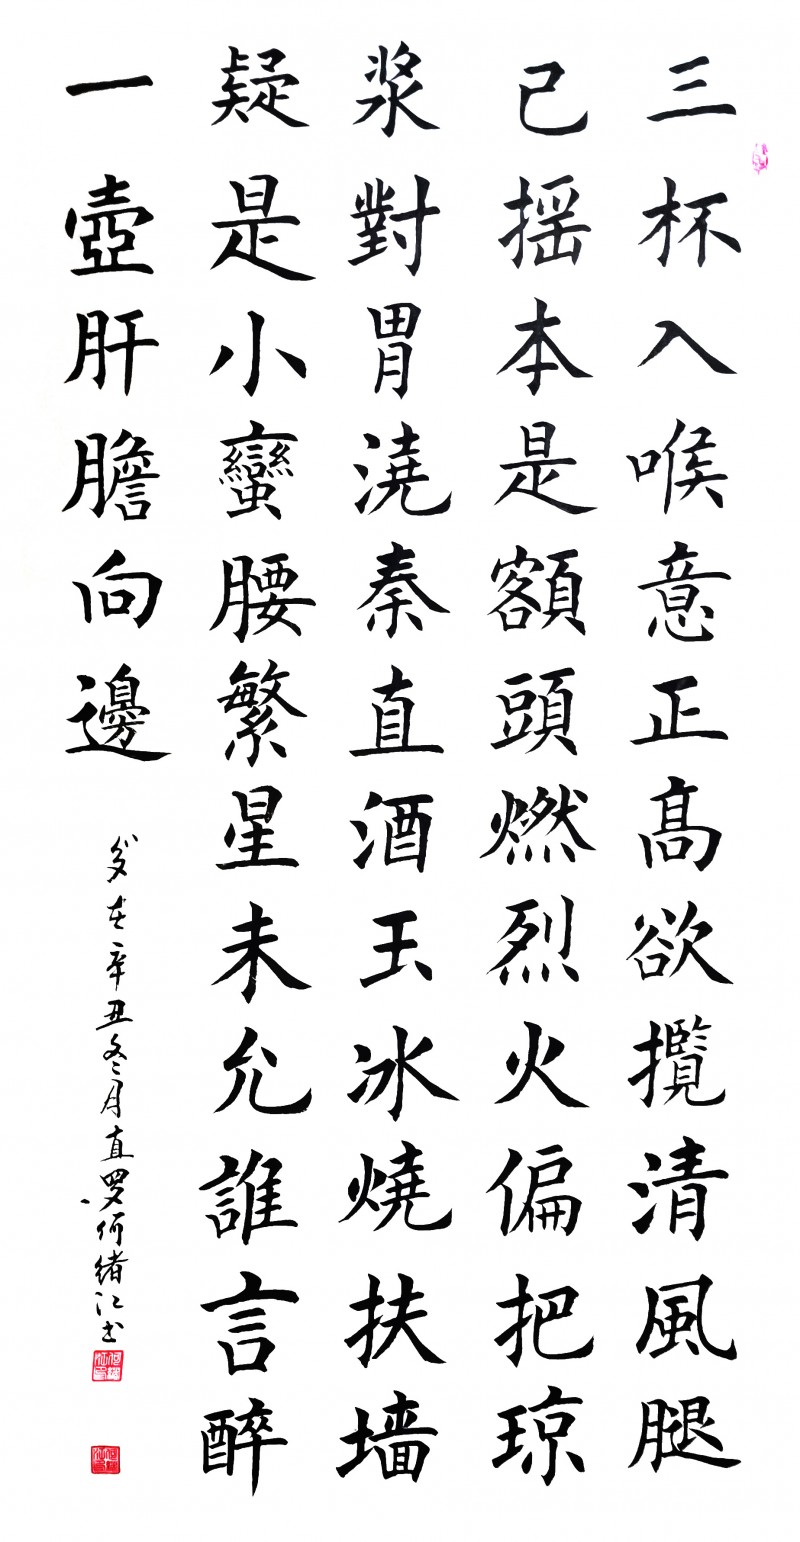 三杯入喉意正高欲攬清風腿
已摇本是額頭燃烈火偏把琼
浆對胃澆秦直酒玉冰燒扶墙
疑是小蠻腰繁星未允誰言醉
一壺肝膽向邊
岁在辛丑冬月直罗何绪江书